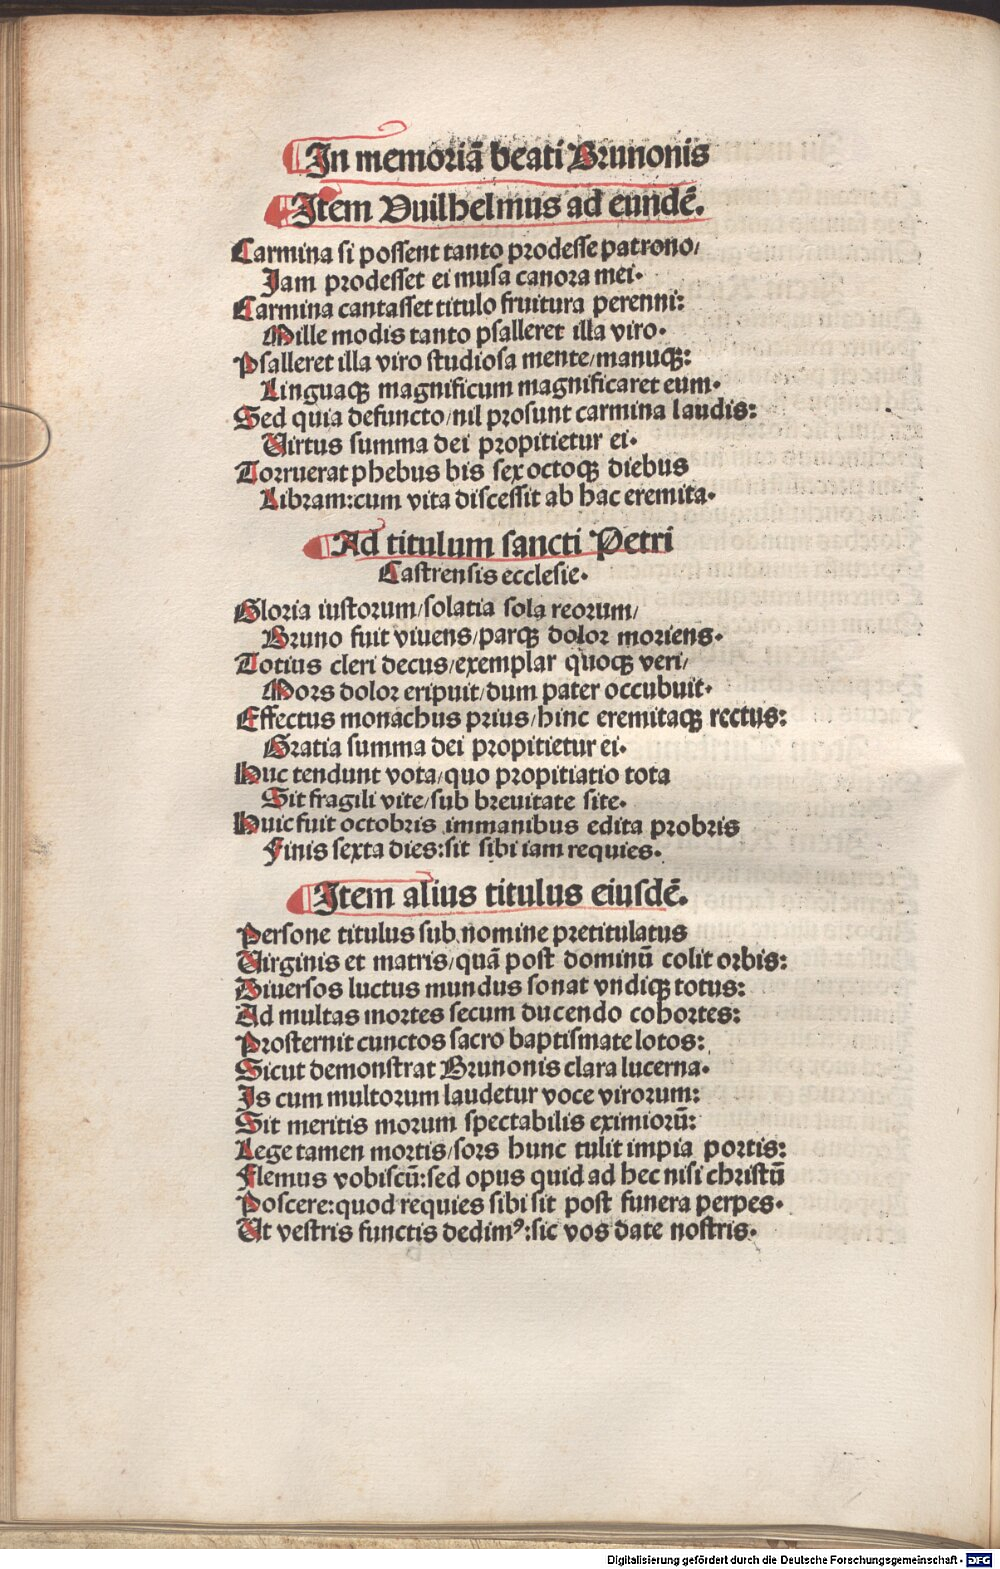 In memoriā beati Brunonis
Item Vuilhelmus ad eundē.
Carmina si possent tanto prodesse patrono/
Jam prodesset ei musa canora mei.
Carmina cantasset titulo fruitura perenni:
Mille modis tanto psalleret illa viro.
Psalleret illa viro studiosa mente/manuqꝫ:
Linguaqꝫ magnificum magnificaret eum.
Sed quia defuncto/nil prosunt carmina laudis:
Virtus summa dei propitietur ei.
Torruerat phebus bis sex octoqꝫ diebus
Libram:cum vita discessit ab hac eremita.
Ad titulum sancti Petri
Castrensis ecclesie.
Gloria iustorum/solatia sola reorum/
Bruno fuit vivens/parqꝫ dolor moriens.
Totius cleri decus/exemplar quoqꝫ veri/
Mors dolor eripuit/dum pater occubuit.
Effectus monachus prius/hinc eremitaqꝫ rectus:
Gratia summa dei propitietur ei.
Huc tendunt vota/quo propitiatio tota
Sit fragili vite/sub brevitate site.
Huic fuit octobris immanibus edita probris
Finis sexta dies:sit sibi iam requies.
Item alius titulus eiusdē.
Persone titulus sub nomine pretitulatus
Virginis et matris/quā post dominū colit orbis:
Diversos luctus mundus sonat vndiqꝫ totus:
Ad multas mortes secum ducendo cohortes:
Prosternit cunctos sacro baptismate lotos:
Sicut demonstrat Brunonis clara lucerna.
Is cum multorum laudetur voce virorum:
Sit meritis morum spectabilis eximiorū:
Lege tamen mortis/sors hunc tulit impia portis:
Flemus vobiscū:sed opus quid ad hec nisi christū
Poscere:quod requies sibi sit post funera perpes.
Ut vestris functis dedimꝰ:sic vos date nostris.
Digitalisierung gefördert durch die Deutsche Forschungsgemeinschaft - DFG